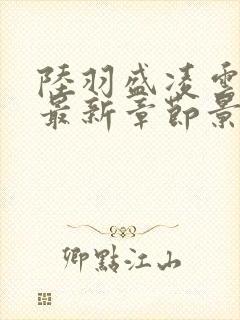 陸羽盛凌雲
最新章節景
卿點江山